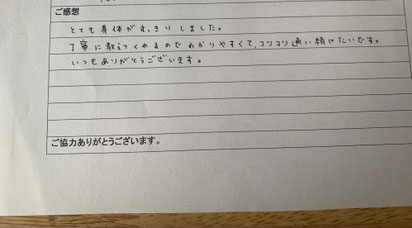 ご感想
とても身体がすっきりしました。
丁寧に教えてくれるのでわかりやすくて、コツコツ通い続けたいです。
いつもありがとうございます。
ご協力ありがとうございます。